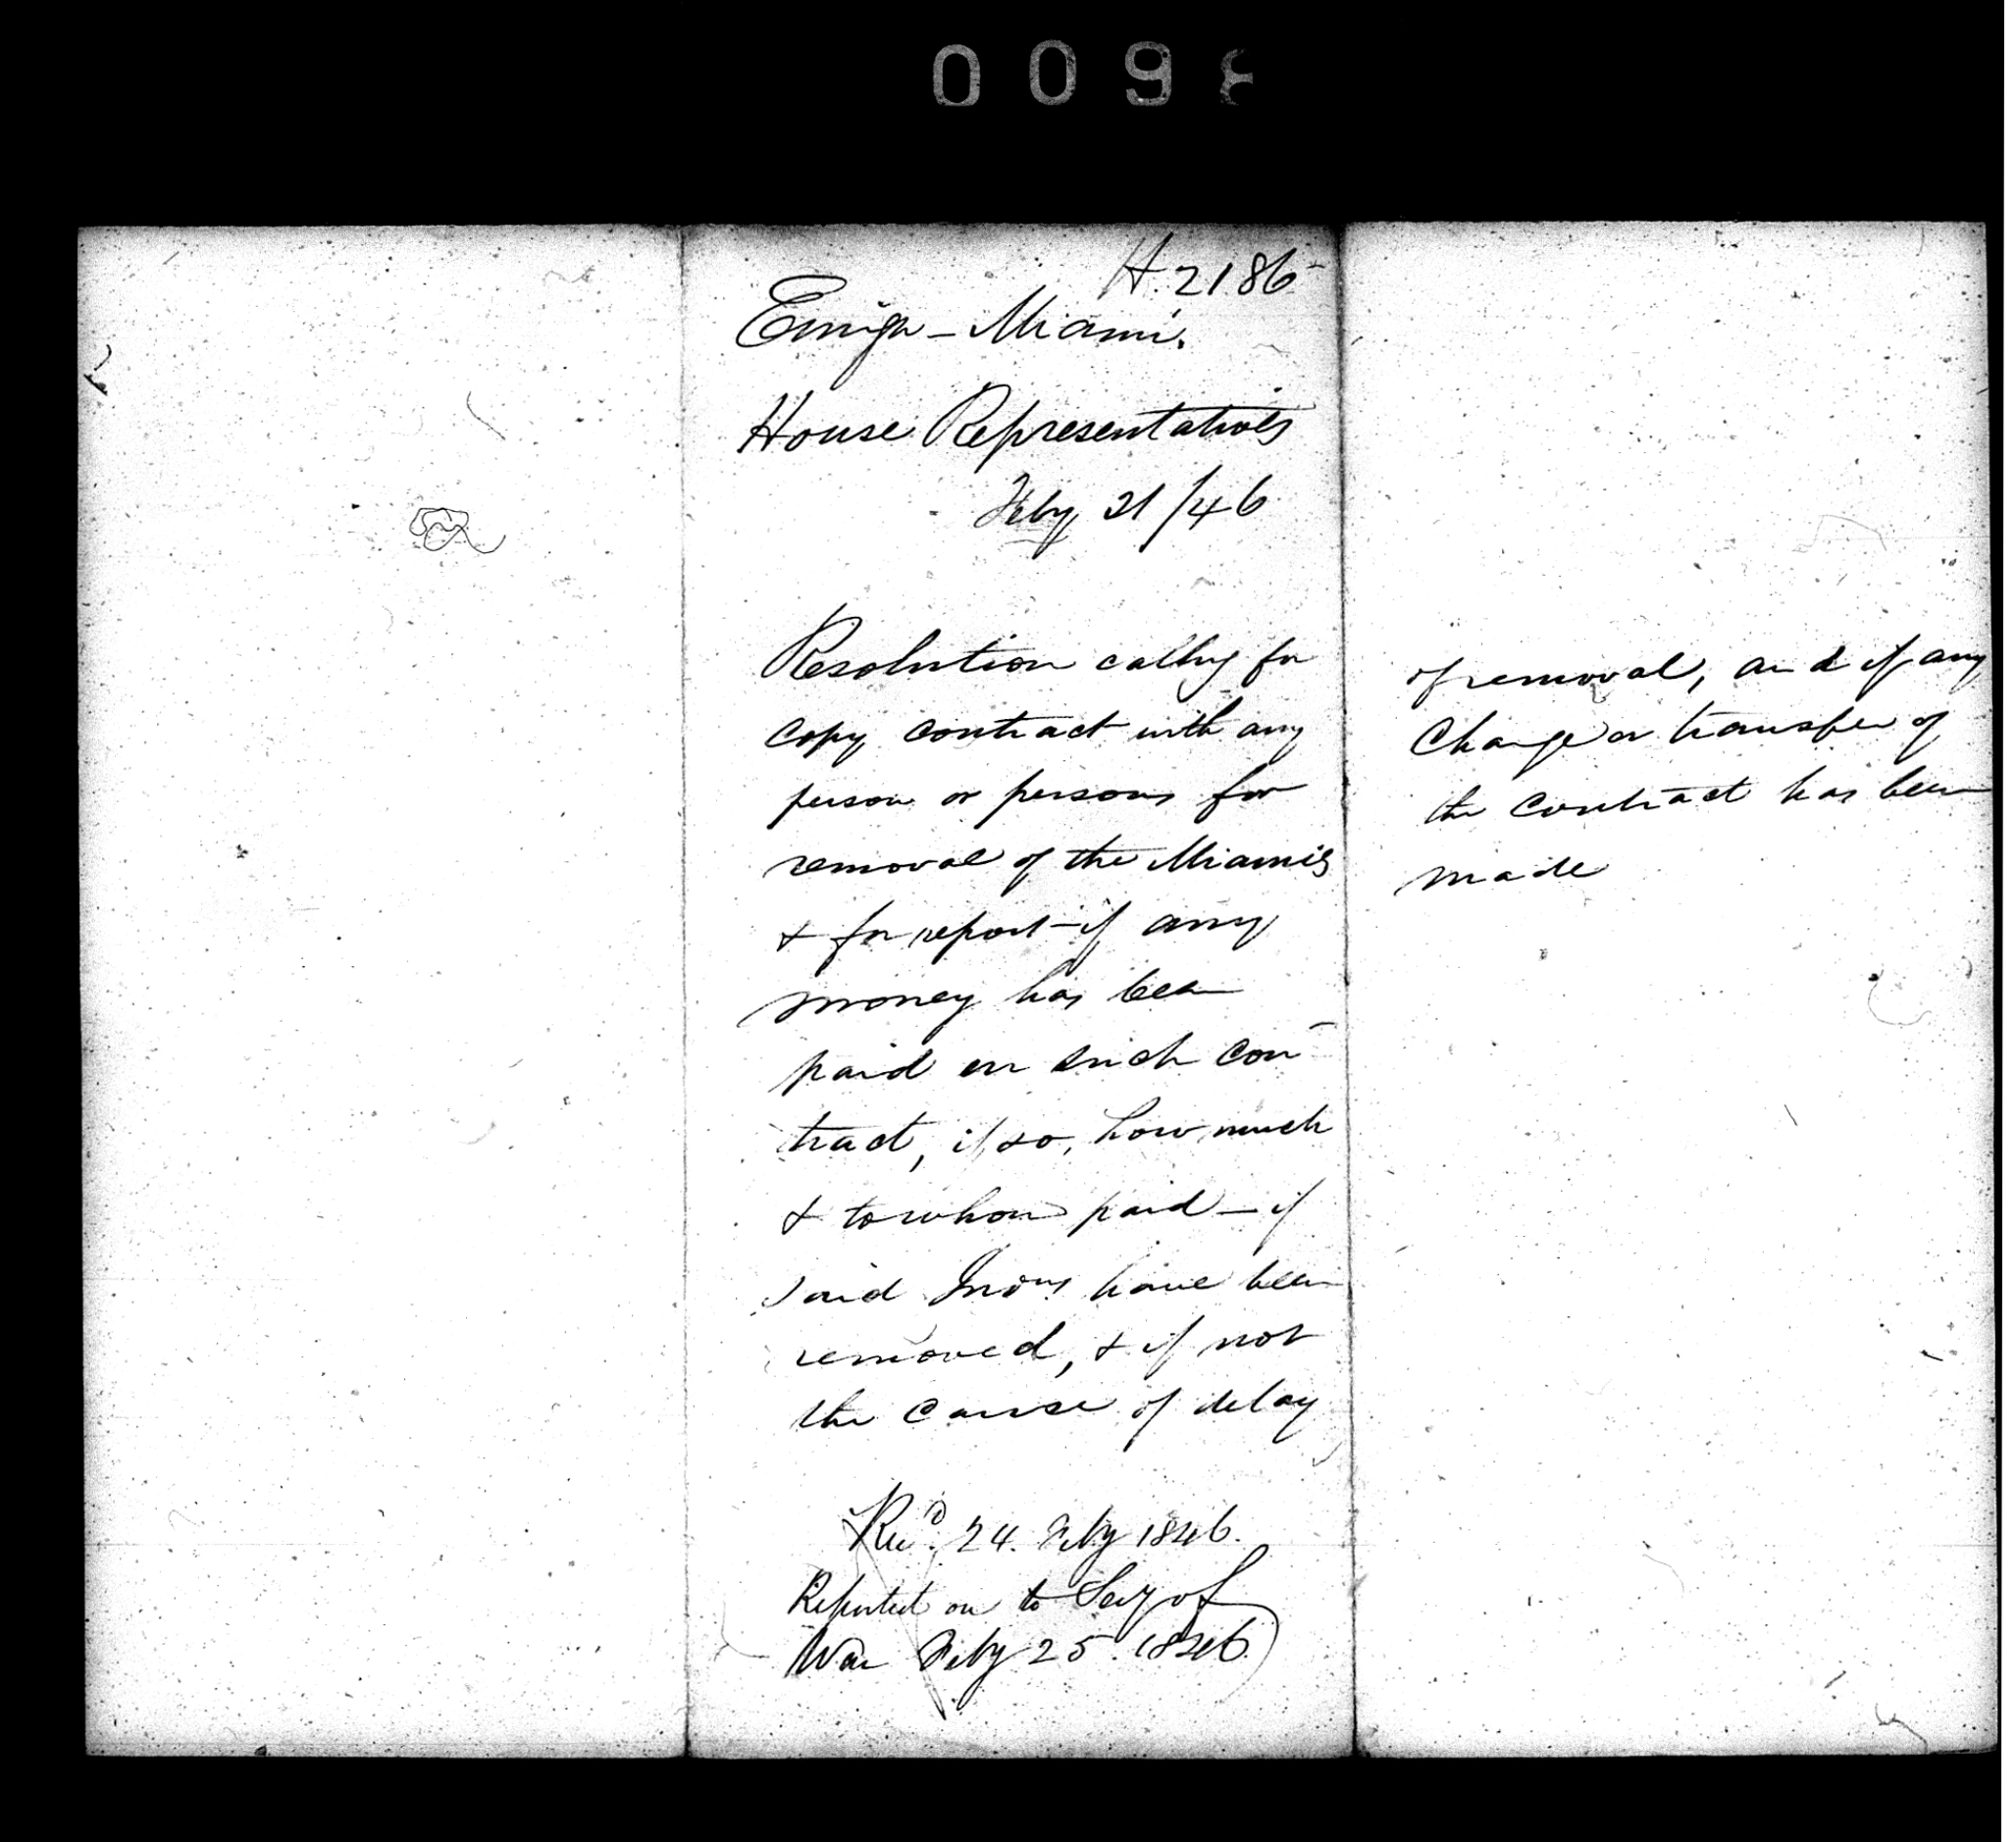 009
H. 2186
Emigr - Miami.
House Representatives
Feby 21/46
Resolution callg for
copy contract with any
person or persons for
removal of the Miamis
& for report - if any
money has been
paid on such con-
tract, if so, how much
& to whom paid - if
said Inds have been
removed, & if not
the cause of delay
of removal, and if any
change or transfer of
the contract has been
made
Recd. 24. Feby 1846.
Reported on to Secy of
War Feby 25. 1846